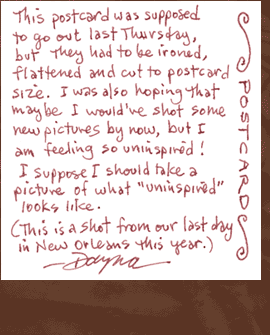 This postcard was supposed
to go out last Thursday,
but they had to be ironed,
flattened and cut to postcard
size. I was also hoping that
maybe I would've shot some
new pictures by now, but I
am feeling so uninspired!
I suppose I should take a
picture of what "uninspired"
looks like.
(This is a shot from our last day
in New Orleans this year.)
—Dayna
POSTCARDS